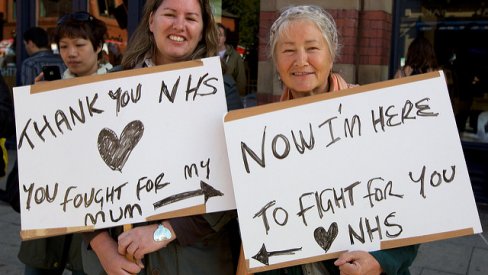 THANK YOU NHS
YOU FOUGHT FOR MY
MUM
NOW I'M HERE
TO FIGHT FOR YOU
NHS